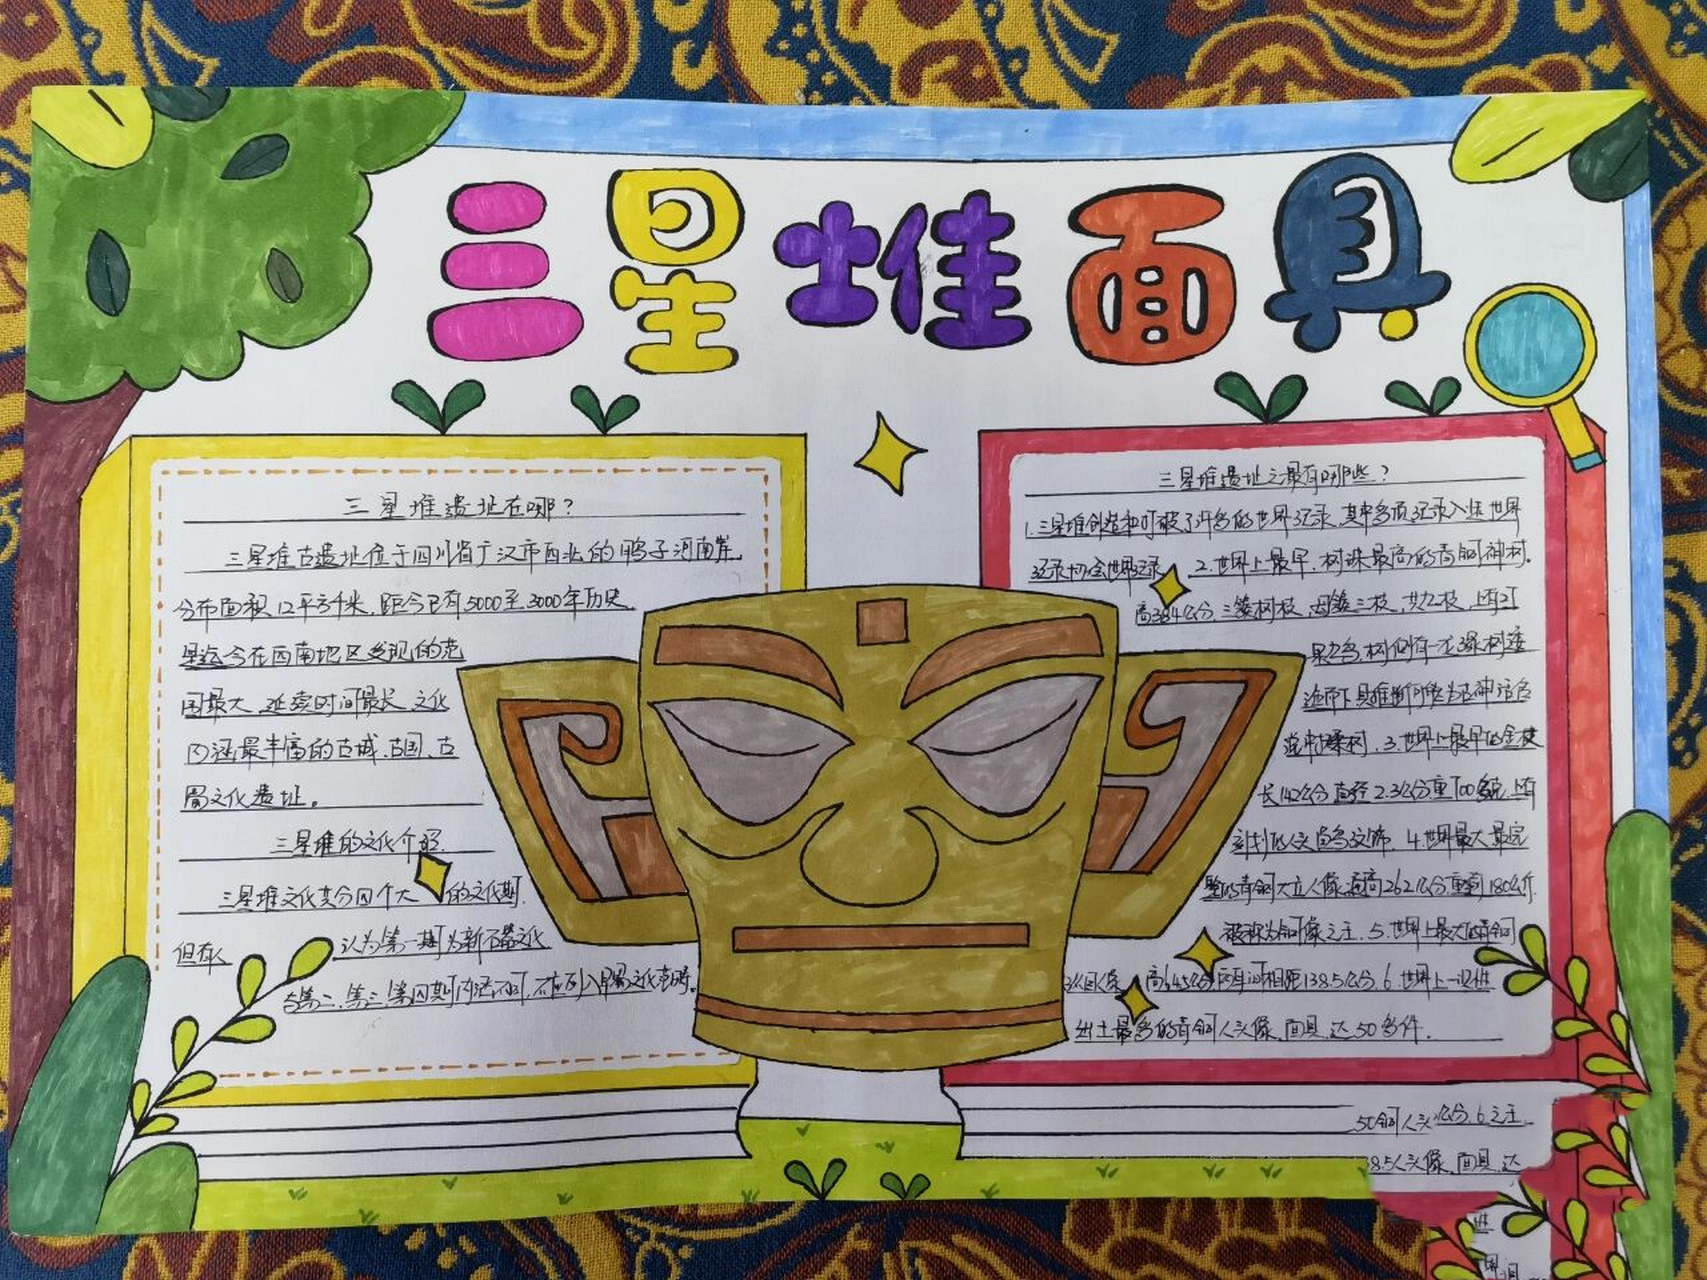 三星堆面具
三星堆遗址在哪?
三星堆古遗址位于四川省广汉市西北的鸭子河南岸,
分布面积12平方千米,距今已有5000至3000年历史,
是迄今在西南地区发现的范
围最大,延续时间最长,文化
内涵最丰富的古城、古国、古
蜀文化遗址。
三星堆的文化介绍
三星堆文化共分四个大 的文化期,
但有人 认为第一期为新石器文化
与第二、第三、第四期内涵不同,不应列入早蜀文化范畴。
三星堆遗址之最有哪些?
1.三星堆创造和打破了许多的世界记录,其中多项记录入选世界
记录协会世界记录 2.世界上最早,树株最高的青铜神树.
高384公分,三簇树枝,每簇三枝,共九枝,上有27
果九鸟,树侧有一龙缘树逶
迤而下,具推断可能为古神话名
说中扶桑树.3.世界上最早的金杖
长142公分直径2.3公分重700多克,上有
刻划的人头鱼鸟纹饰.4.世界最大最完
整的青铜大立人像,通高262公分重逾180公斤
被称为铜像之王.5.世界上最大的青铜
高64.5公分两耳间相距138.5公分.6.世界上一次性
出土最多的青铜人头像,面具,达50多件.
人头 公分.6.之王
8.5人头像,面具,达